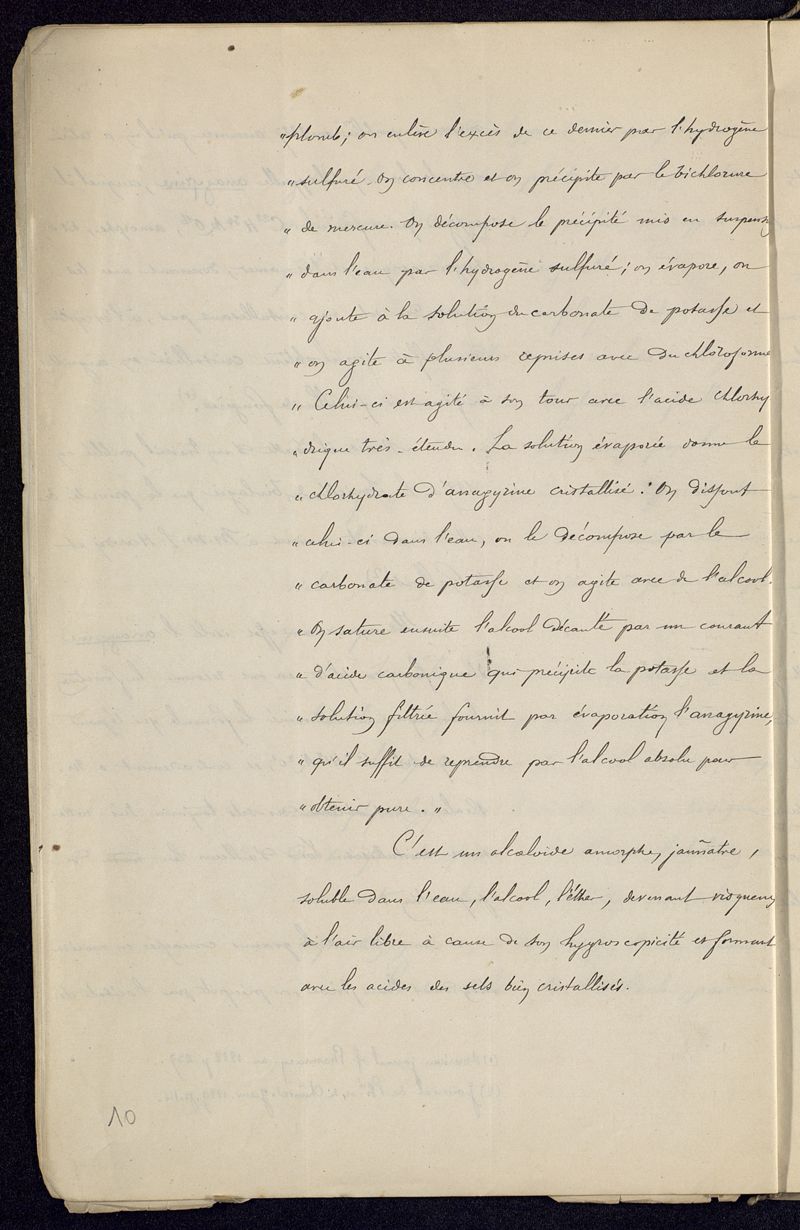 " plomb; on enlève l'excès de ce dernier par l'hydrogène
" sulfuré. On concentre et on précipite par le bichlorure
" de mercure. On décompose le précipité mis en suspension
" dans l'eau par l'hydrogène sulfuré; on évapore, on
" ajoute à la solution du carbonate de potasse et
" on agite à plusieurs reprises avec du chloroforme
" Celui-ci est agité à son tour avec l'acide chlorhy
" drique très-étendu. La solution évaporée donne le
" chlorhydrate d'anagyrine cristallisé. On dissout
" celui-ci dans l'eau, on le décompose par le
" carbonate de potasse et on agite avec de l'alcool.
" On sature ensuite l'alcool décanté par un courant
" d'acide carbonique qui précipite la potasse et la
" solution filtrée fournit par évaporation l'anagyrine,
" qu'il suffit de reprendre par l'alcool absolu pour
" obtenir pure. "
C'est un alcaloïde amorphe, jaunâtre,
soluble dans l'eau, l'alcool, l'éther, devenant visqueux
à l'air libre à cause de son hygroscopicité et formant
avec les acides des sels bien cristallisés.
10